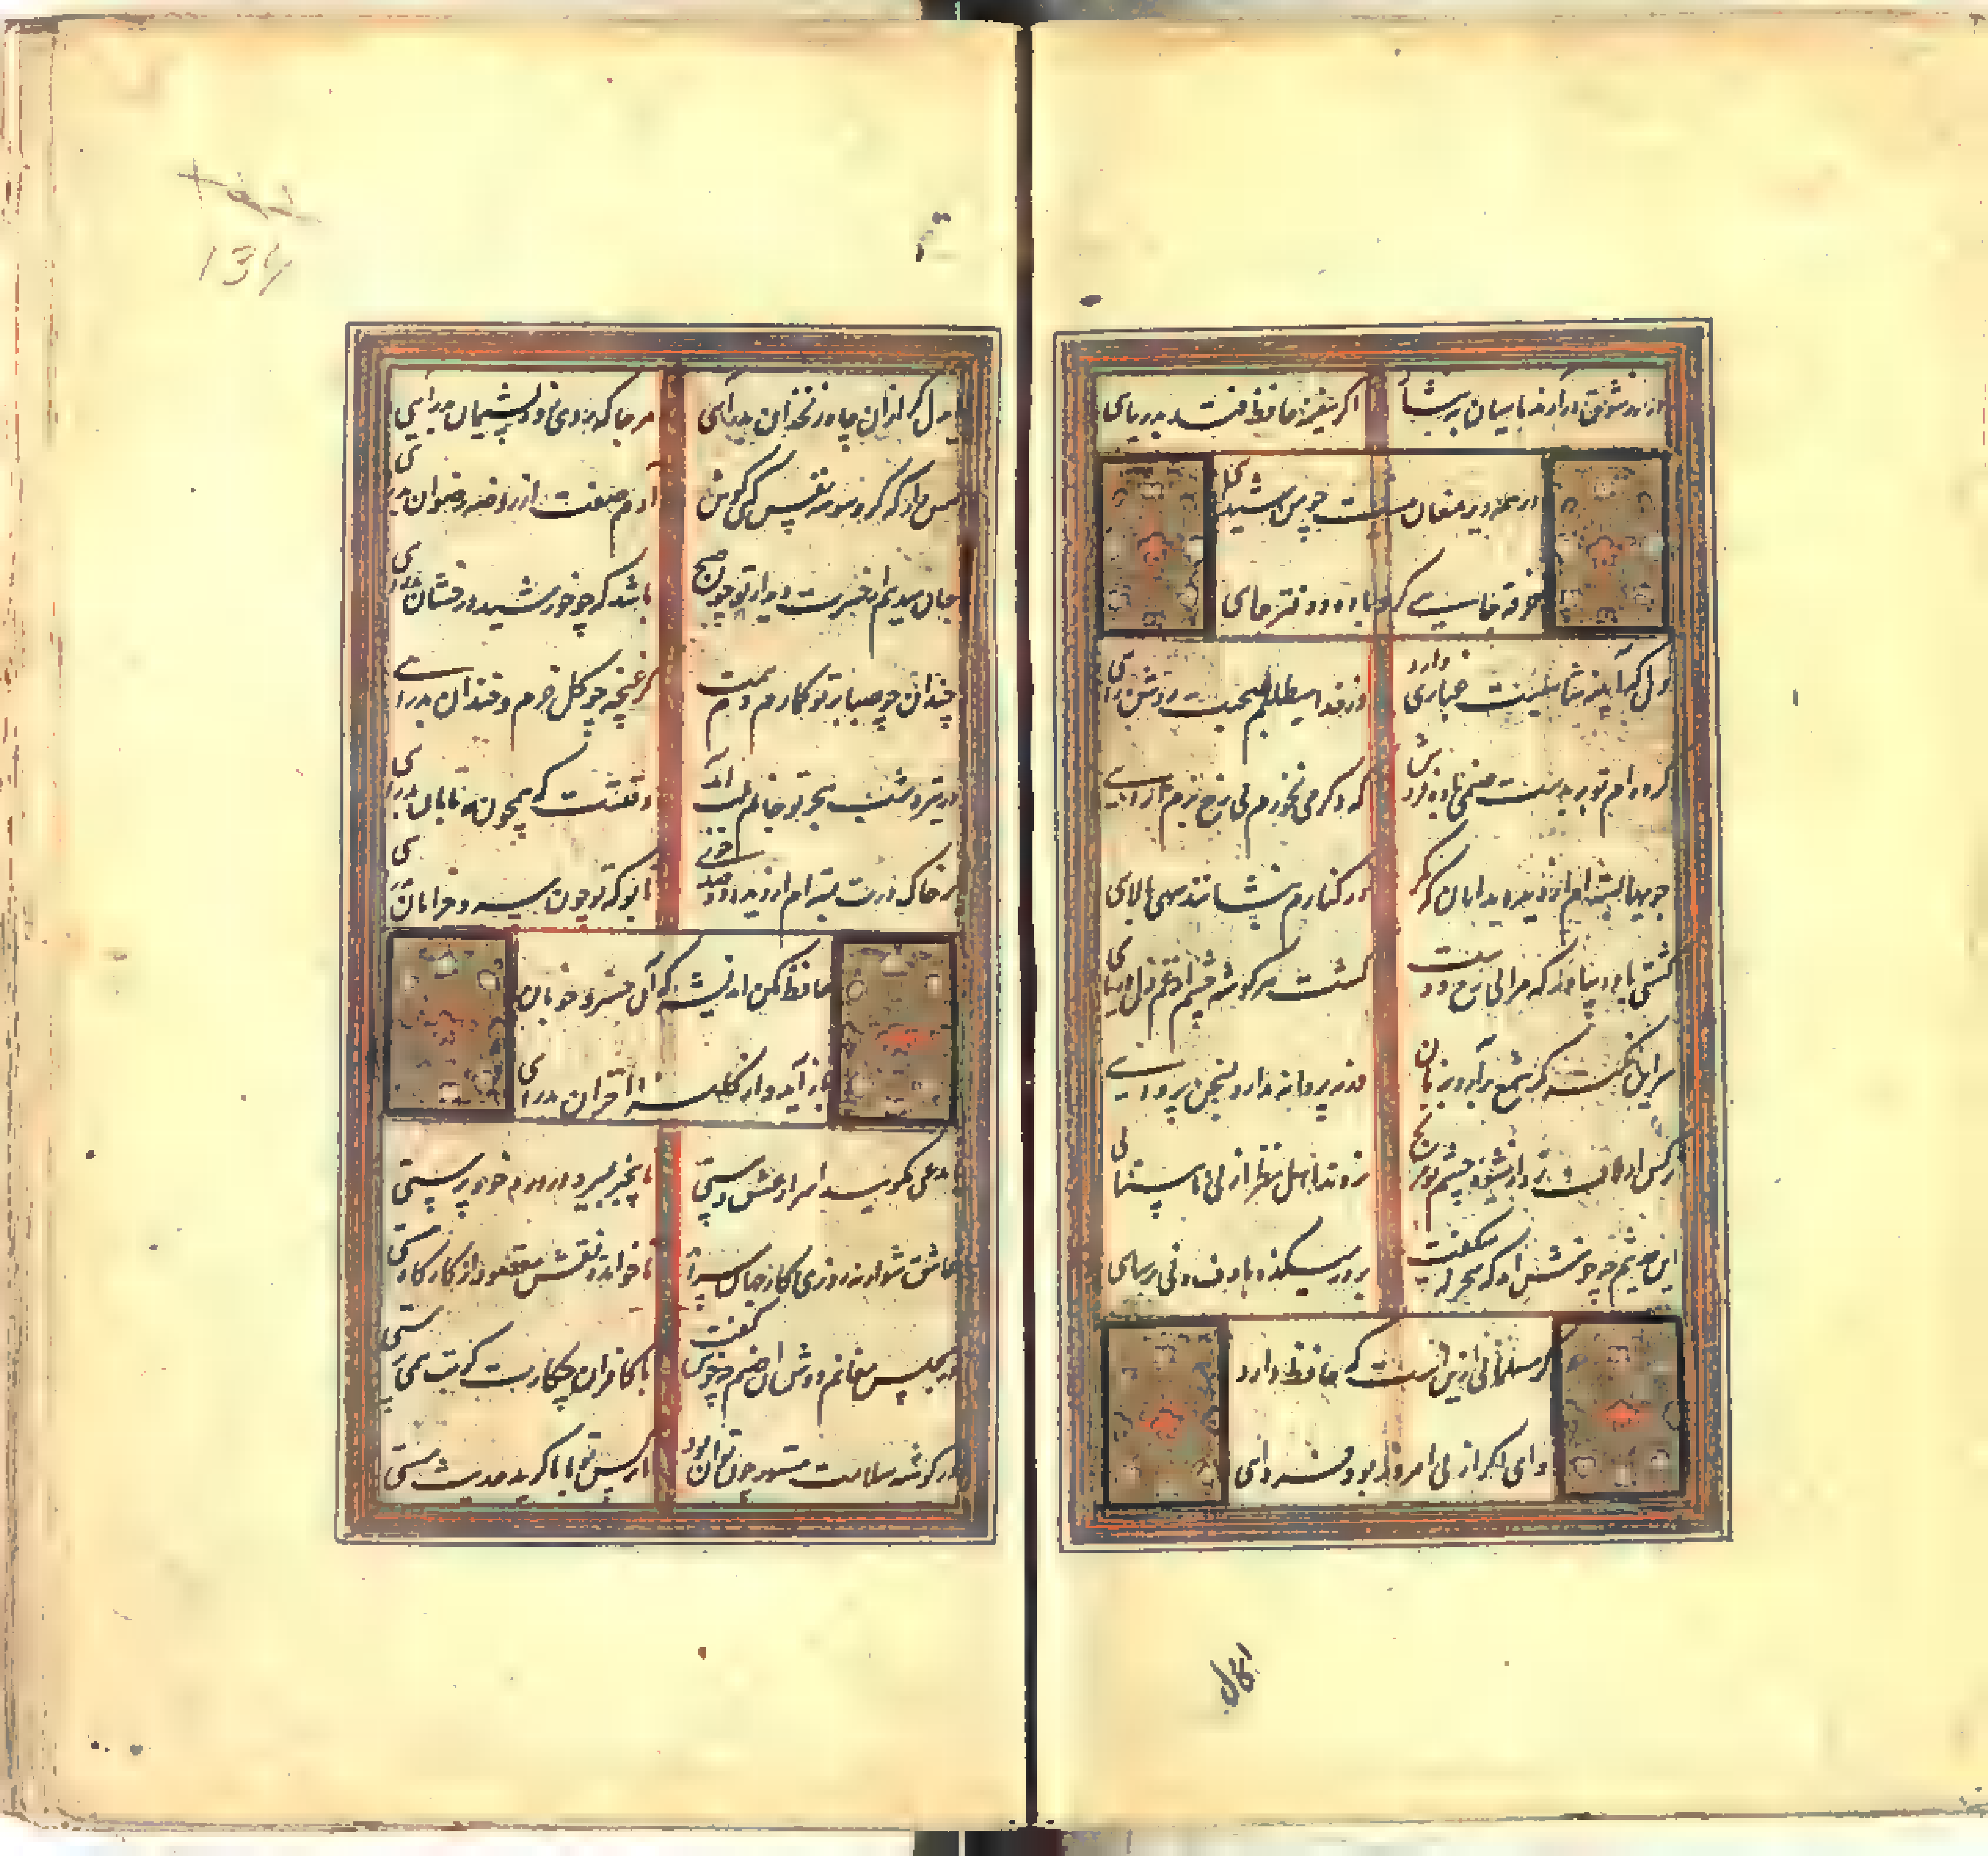 درر ز شوق برآرند ماهیان به نثار اگر سفینه حافظ رسد به دریای
در همه دیر مغان نیست چو من شیدای
خرقه جایی گرو باده و دفتر جای
دل که آیینه شاهیست غباری دارد از خدا میطلبم صحبت روشن رای
کرده ام توبه بدست صنمی باده فروش که دگر می نخورم بی رخ بزم آرای
جویها بسته ام از دیده بدامان که مگر در کنارم بنشانند سهی بالای
کشتی باده بیاور که مرا بی رخ دوست گشت هر گوشه چشم از غم دل دریای
سر این نکته مگر شمع برآرد بزبان ورنه پروانه ندارد بسخن پروای
نرگس ار لاف زد از شیوه چشم تو مرنج نروند اهل نظر از پی نابینای
این حدیثم چه خوش آمد که سحرگه میگفت بر در میکده با دف و نی ترسای
گر مسلمانی ازین است که حافظ دارد
وای اگر از پی امروز بود فردای
ایدل
ایدل گر از آن چاه زنخدان بدرآیی هر جا که روی زود پشیمان بدرآیی
هش دار که گر وسوسه نفس کنی گوش آدم صفت از روضه رضوان بدرآیی
جان میدهم از حسرت دیدار تو چون صبح باشد که چو خورشید درخشان بدرآیی
چندان چو صبا بر تو گمارم دم همت کز غنچه چو گل خرم و خندان بدرآیی
در تیره شب هجر تو جانم بلب آمد وقتست که همچون مه تابان بدرآیی
بر خاک درت بسته ام از دیده دو صد جوی تا بو که تو چون سرو خرامان بدرآیی
حافظ مکن اندیشه که آن خسرو خوبان
بازآید و از کلبه احزان بدرآیی
با مدعی مگویید اسرار عشق و مستی تا بیخبر بمیرد در درد خودپرستی
عاشق شو ار نه روزی کار جهان سرآید ناخوانده نقش مقصود از کارگاه هستی
در مجلس مغانم دوش آن صنم چه خوش گفت با کافران چه کارت گر بت نمی پرستی
در گوشه سلامت مستور چون توان بود تا نرگس تو با ما گوید حدیث مستی
134